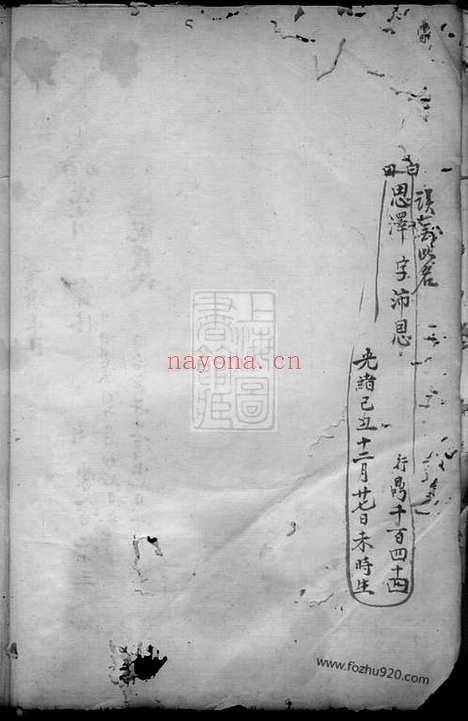 誤載此名
思澤字沛恩
行昺千百四十四
光緒己丑十二月廿七日未時生
上海圖書館藏
nayona.cn
www.fozhu920.com